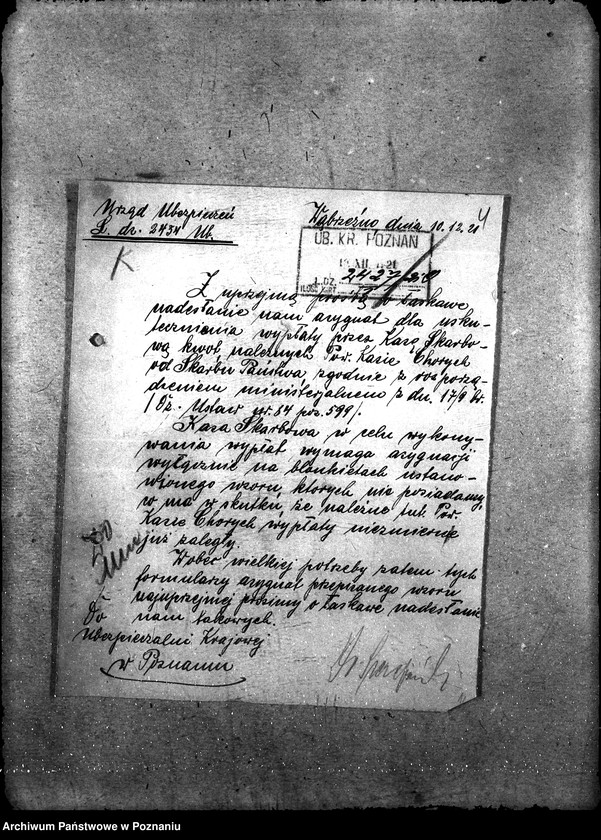 Urząd Ubezpieczeń
L. dz. 2434 Ub.
Wąbrzeźno dnia 10.12.21
4
UB. KR. POZNAŃ
XII. 1921
L. DZ. 2427
K
Z uprzejmą prośbą o łaskawe
nadesłanie nam asygnat dla usku-
tecznienia wypłaty przez Kasę Skarbo-
wą kwot należnych Pow. Kasie Chorych
od Skarbu Państwa zgodnie z rozporzą-
dzeniem ministerjalnem z dn. 17/9 br.
/Dz. Ustaw nr. 84 poz. 599/.
Kasa Skarbowa w celu wykony-
wania wypłat wymaga asygnacji
wyłącznie na blankietach ustano-
wionego wzoru, których nie posiadamy,
co ma w skutku, że należne tut. Pow.
Kasie Chorych wypłaty niezmiernie
już zaległy.
Wobec wielkiej potrzeby zatem tych
formularzy asygnat przepisanego wzoru
najuprzejmiej prosimy o łaskawe nadesłanie
nam takowych.
Do
Ubezpieczalni Krajowej
w Poznaniu
Archiwum Państwowe w Poznaniu